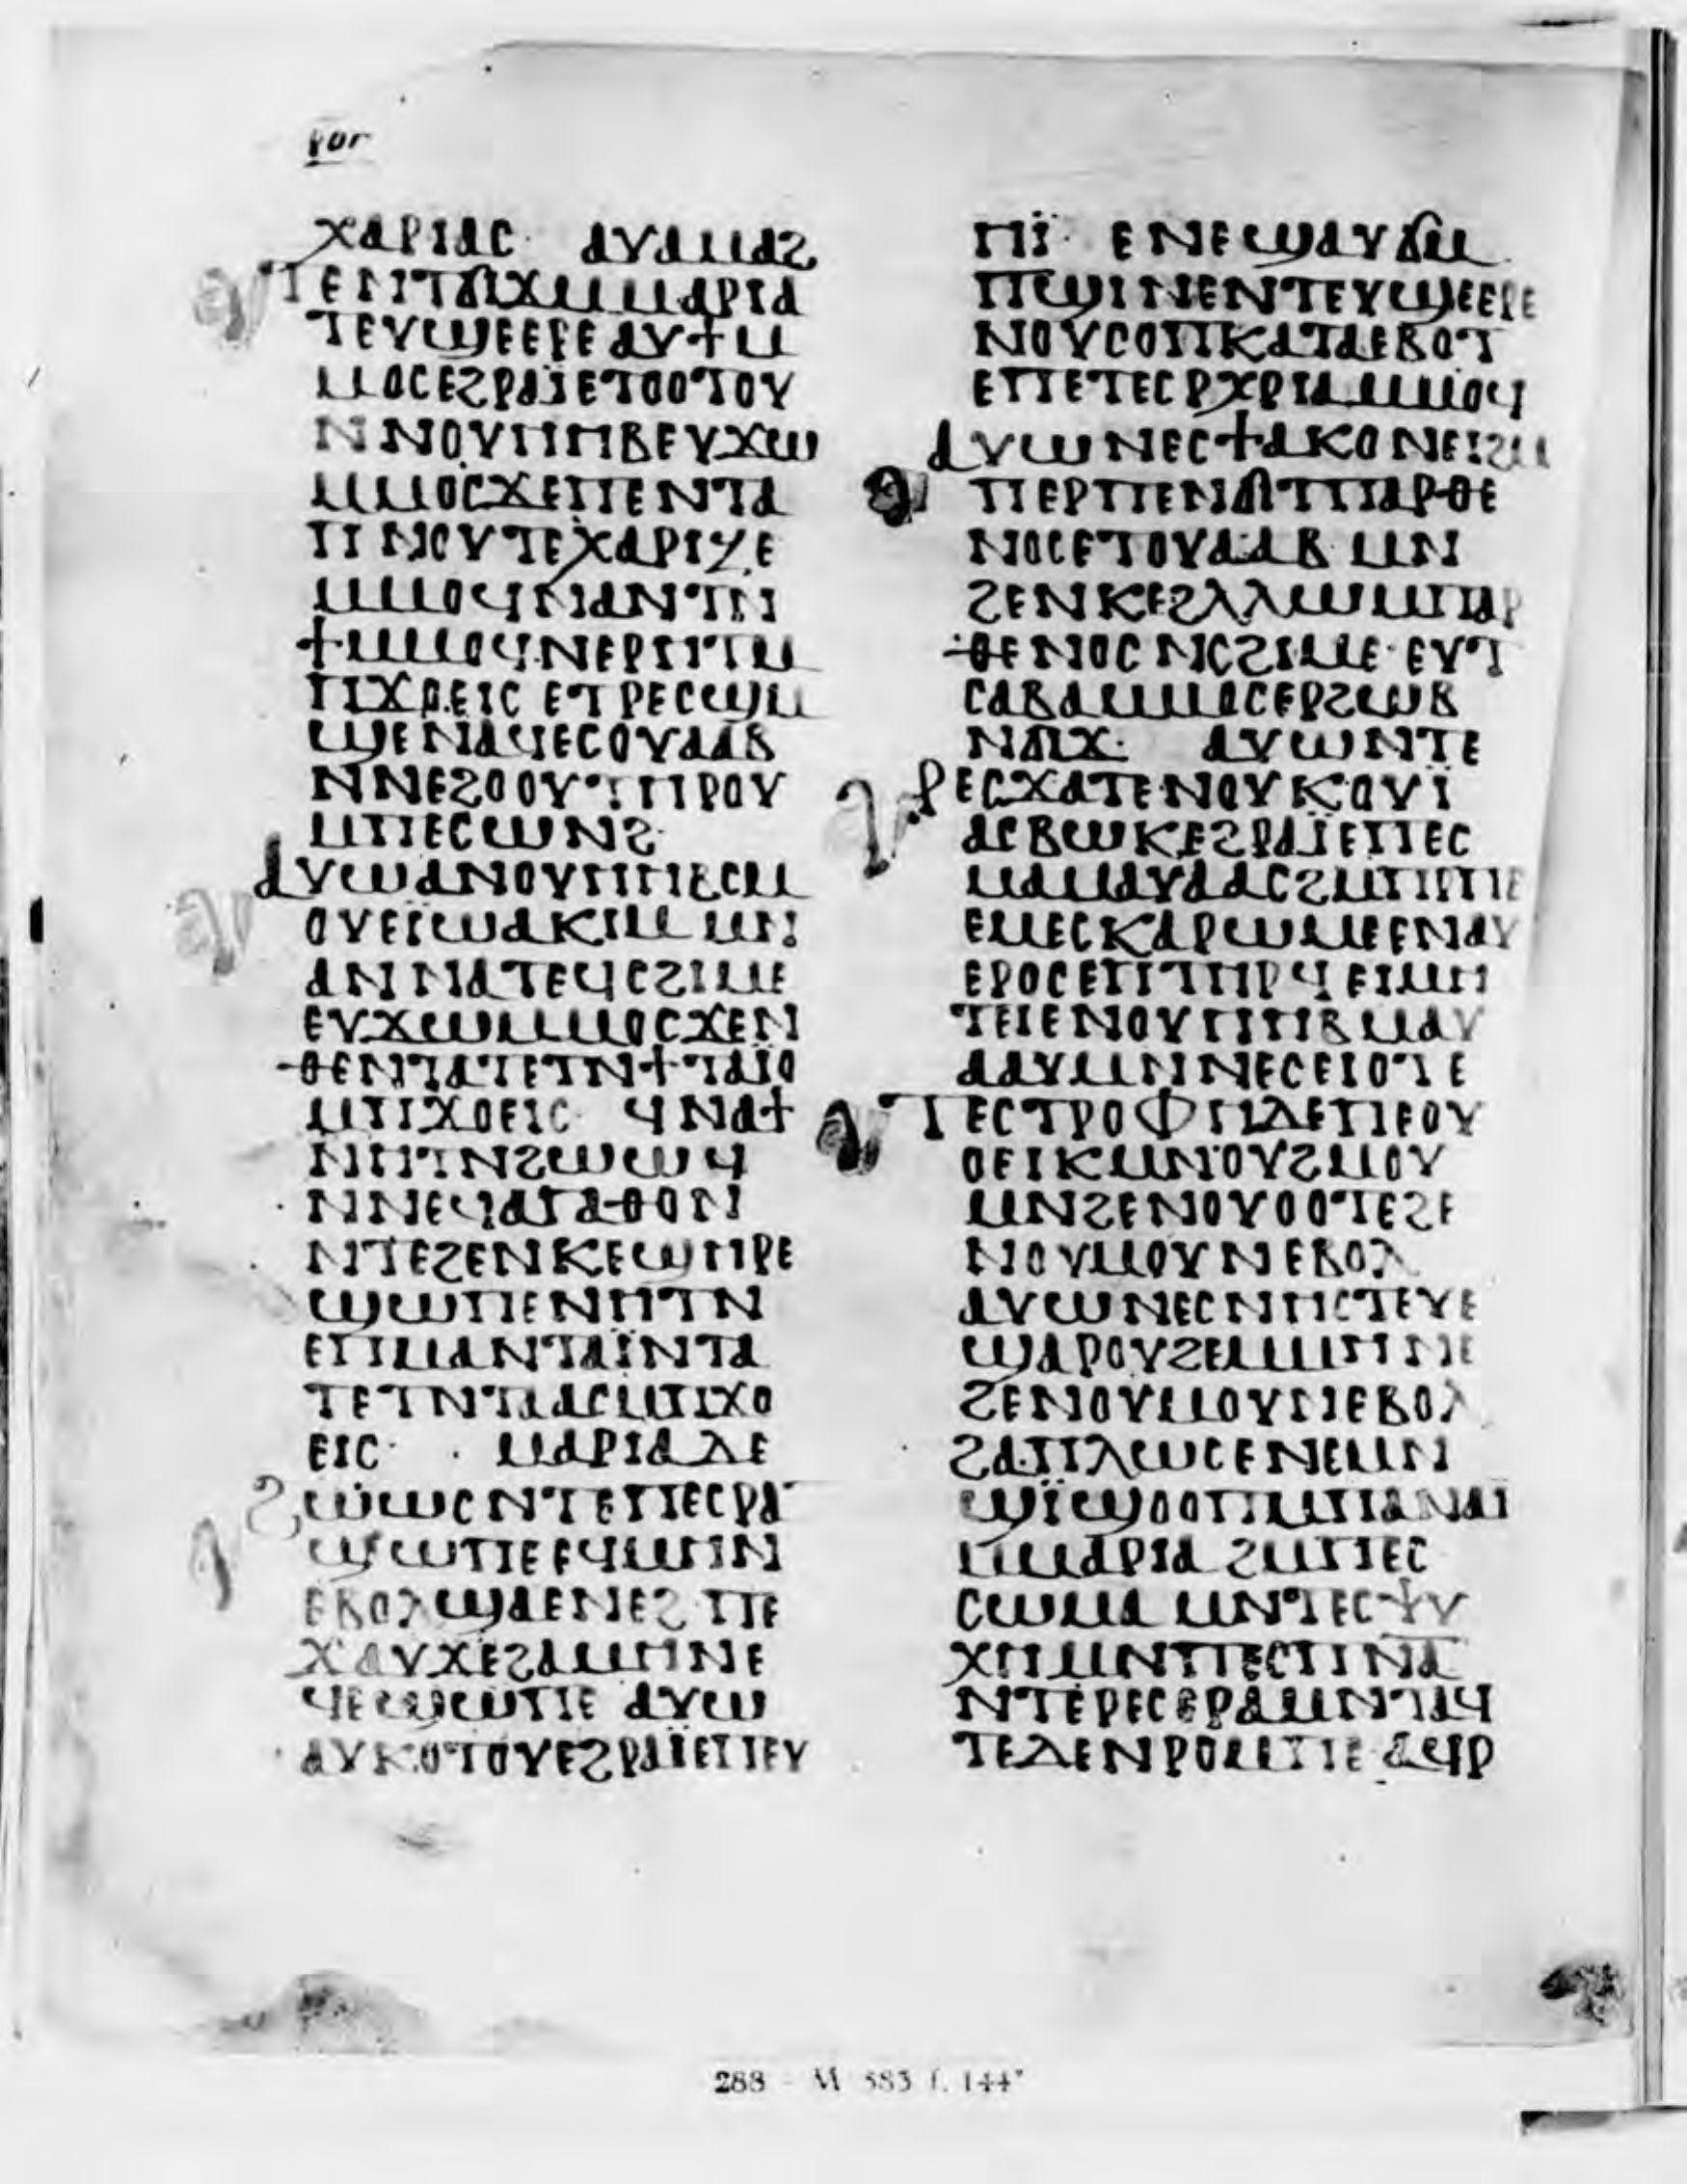 ⲣⲟⲅ
ⲭⲁⲣⲓⲁⲥ· ⲁⲩⲁⲙⲁϩ
ⲧⲉ ⲛⲧϭⲓϫ ⲙⲙⲁⲣⲓⲁ
ⲧⲉⲩϣⲉⲉⲣⲉ ⲁⲩϯ ⲙ
ⲙⲟⲥ ⲉϩⲣⲁⲓ̈ ⲉⲧⲟⲟⲧⲟⲩ
ⲛⲛⲟⲩⲏⲏⲃ ⲉⲩϫⲱ
ⲙⲙⲟⲥ ϫⲉ ⲡⲉⲛⲧⲁ
ⲡⲛⲟⲩⲧⲉ ⲭⲁⲣⲓⲍⲉ
ⲙⲙⲟϥ ⲛⲁⲛ ⲧⲛ
ϯ ⲙⲙⲟϥ ⲛⲉⲣⲏⲧ ⲙ
ⲡϫⲟⲉⲓⲥ ⲉⲧⲣⲉⲥϣⲙ
ϣⲉ ⲛⲁϥ ⲉⲥⲟⲩⲁⲁⲃ
ⲛⲛⲉϩⲟⲟⲩ ⲧⲏⲣⲟⲩ
ⲙⲡⲉⲥⲱⲛϩ·
ⲁⲩⲱ ⲁ ⲛⲟⲩⲏⲏⲃ ⲥⲙ
ⲟⲩ ⲉⲓ̈ⲱⲁⲕⲓⲙ ⲙⲛ
ⲁⲛⲛⲁ ⲧⲉϥⲥϩⲓⲙⲉ
ⲉⲩϫⲱ ⲙⲙⲟⲥ ϫⲉ ⲛ
ⲑⲉ ⲛⲧⲁⲧⲉⲧⲛϯⲧⲁⲓⲟ
ⲙⲡϫⲟⲉⲓⲥ· ϥⲛⲁϯ
ⲛⲏⲧⲛ ϩⲱⲱϥ
ⲛⲛⲉϥⲁⲅⲁⲑⲟⲛ
ⲛⲧⲉ ϩⲉⲛⲕⲉϣⲏⲣⲉ
ϣⲱⲡⲉ ⲛⲏⲧⲛ
ⲉⲡⲙⲁ ⲛⲧⲁⲓ̈ ⲛⲧⲁ
ⲧⲉⲧⲛⲧⲁⲁⲥ ⲙⲡϫⲟ
ⲉⲓⲥ· ⲙⲁⲣⲓⲁ ⲇⲉ
ϩⲱⲱⲥ ⲛⲧⲉ ⲡⲉⲥⲣⲁ
ϣⲱⲡⲉ ⲉϥⲙⲏⲛ
ⲉⲃⲟⲗ ϣⲁ ⲉⲛⲉϩ· ⲡⲉ
ϫⲁⲩ ϫⲉ ϩⲁⲙⲏⲛ ⲛⲉ
ϥⲉϣⲱⲡⲉ ⲁⲩⲱ
ⲁⲩⲕⲟⲧⲟⲩ ⲉϩⲣⲁⲓ̈ ⲉⲡⲉⲩ
ⲏⲓ̈· ⲉⲛⲉϣⲁⲩϭⲙ
ⲡϣⲓⲛⲉ ⲛⲧⲉⲩϣⲉⲉⲣⲉ
ⲛⲟⲩⲥⲟⲡ ⲕⲁⲧⲁ ⲉⲃⲟⲧ
ⲉⲡⲉⲧⲉⲥⲣⲭⲣⲓⲁ ⲙⲙⲟϥ
ⲁⲩⲱ ⲛⲉⲥϯⲁⲕⲟⲛⲉⲓ ϩⲙ
ⲡⲉⲣⲡⲉ ⲛϭⲓ ⲧⲡⲁⲣⲑⲉ
ⲛⲟⲥ ⲉⲧⲟⲩⲁⲁⲃ ⲙⲛ
ϩⲉⲛⲕⲉϩⲗⲗⲱ ⲙⲡⲁⲣ
ⲑⲉⲛⲟⲥ ⲛⲥϩⲓⲙⲉ· ⲉⲩⲧ
ⲥⲁⲃⲁ ⲙⲙⲟⲥ ⲉⲣϩⲱⲃ
ⲛϭⲓϫ· ⲁⲩⲱ ⲛⲧⲉ
ⲣⲉⲥϫⲁⲧⲉ ⲛⲟⲩⲕⲟⲩⲓ̈
ⲁⲥⲃⲱⲕ ⲉϩⲣⲁⲓ̈ ⲉⲡⲉⲥ
ⲙⲁ ⲙⲁⲩⲁⲁⲥ ϩⲙ ⲡⲣⲡⲉ
ⲉⲙⲉⲥⲕⲁⲣⲱⲙⲉ ⲉⲛⲁⲩ
ⲉⲣⲟⲥ ⲉⲡⲧⲏⲣϥ ⲉⲓⲙⲏ
ⲧⲉⲓ ⲉⲛⲟⲩⲏⲏⲃ ⲙⲁⲩ
ⲁⲁⲩ ⲙⲛ ⲛⲉⲥⲉⲓⲟⲧⲉ
ⲧⲉⲥⲧⲣⲟⲫⲏ ⲇⲉ ⲡⲉ ⲟⲩ
ⲟⲉⲓⲕ ⲙⲛ ⲟⲩϩⲙⲟⲩ
ⲙⲛ ϩⲉⲛⲟⲩⲟⲟⲧⲉ ϩⲉ
ⲛⲟⲩⲙⲟⲩⲛ ⲉⲃⲟⲗ
ⲁⲩⲱ ⲛⲉⲥⲛⲏⲥⲧⲉⲩⲉ
ϣⲁ ⲣⲟⲩϩⲉ ⲙⲙⲏⲛⲉ
ϩⲉⲛⲟⲩⲙⲟⲩⲛ ⲉⲃⲟⲗ
ϩⲁⲡⲗⲱⲥ ⲉⲛⲉⲙⲛ
ϣⲓ̈ ϣⲟⲟⲡ ⲙⲡⲁⲛⲁⲓ
ⲙⲙⲁⲣⲓⲁ ϩⲙ ⲡⲉⲥ
ⲥⲱⲙⲁ ⲙⲛ ⲧⲉⲥⲯⲩ
ⲭⲏ ⲙⲛ ⲡⲉⲥⲡⲛⲁ
ⲛⲧⲉⲣⲉⲥⲉⲣ ⲁⲙⲛⲧⲁϥ
ⲧⲉ ⲇⲉ ⲛⲣⲟⲙⲡⲉ ⲁϥⲣ
288 - M 583 f. 144ᵛ